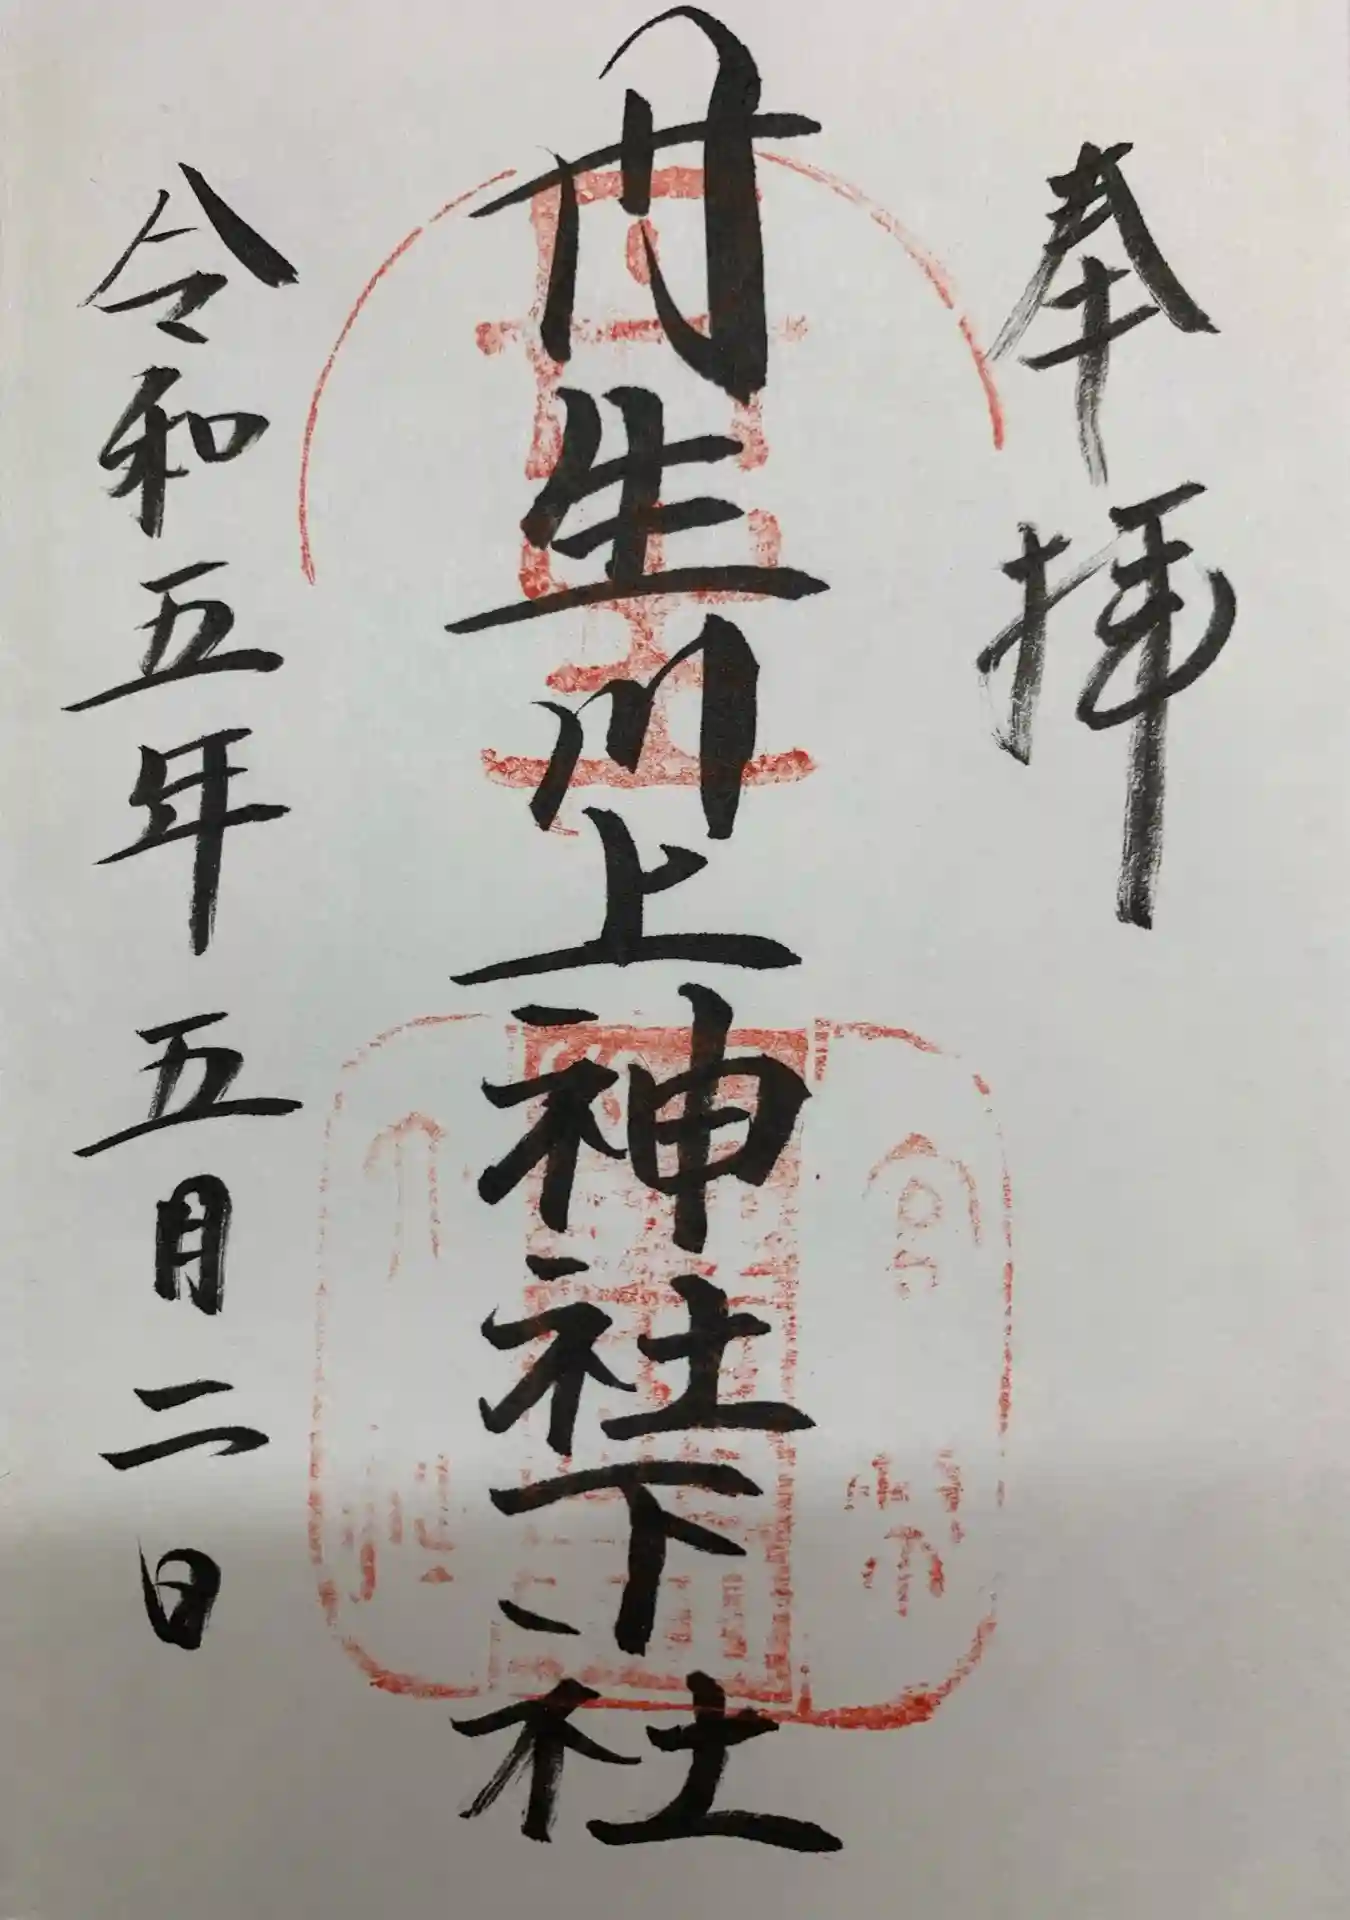 奉拝
丹生川上神社下社
令和五年五月二日